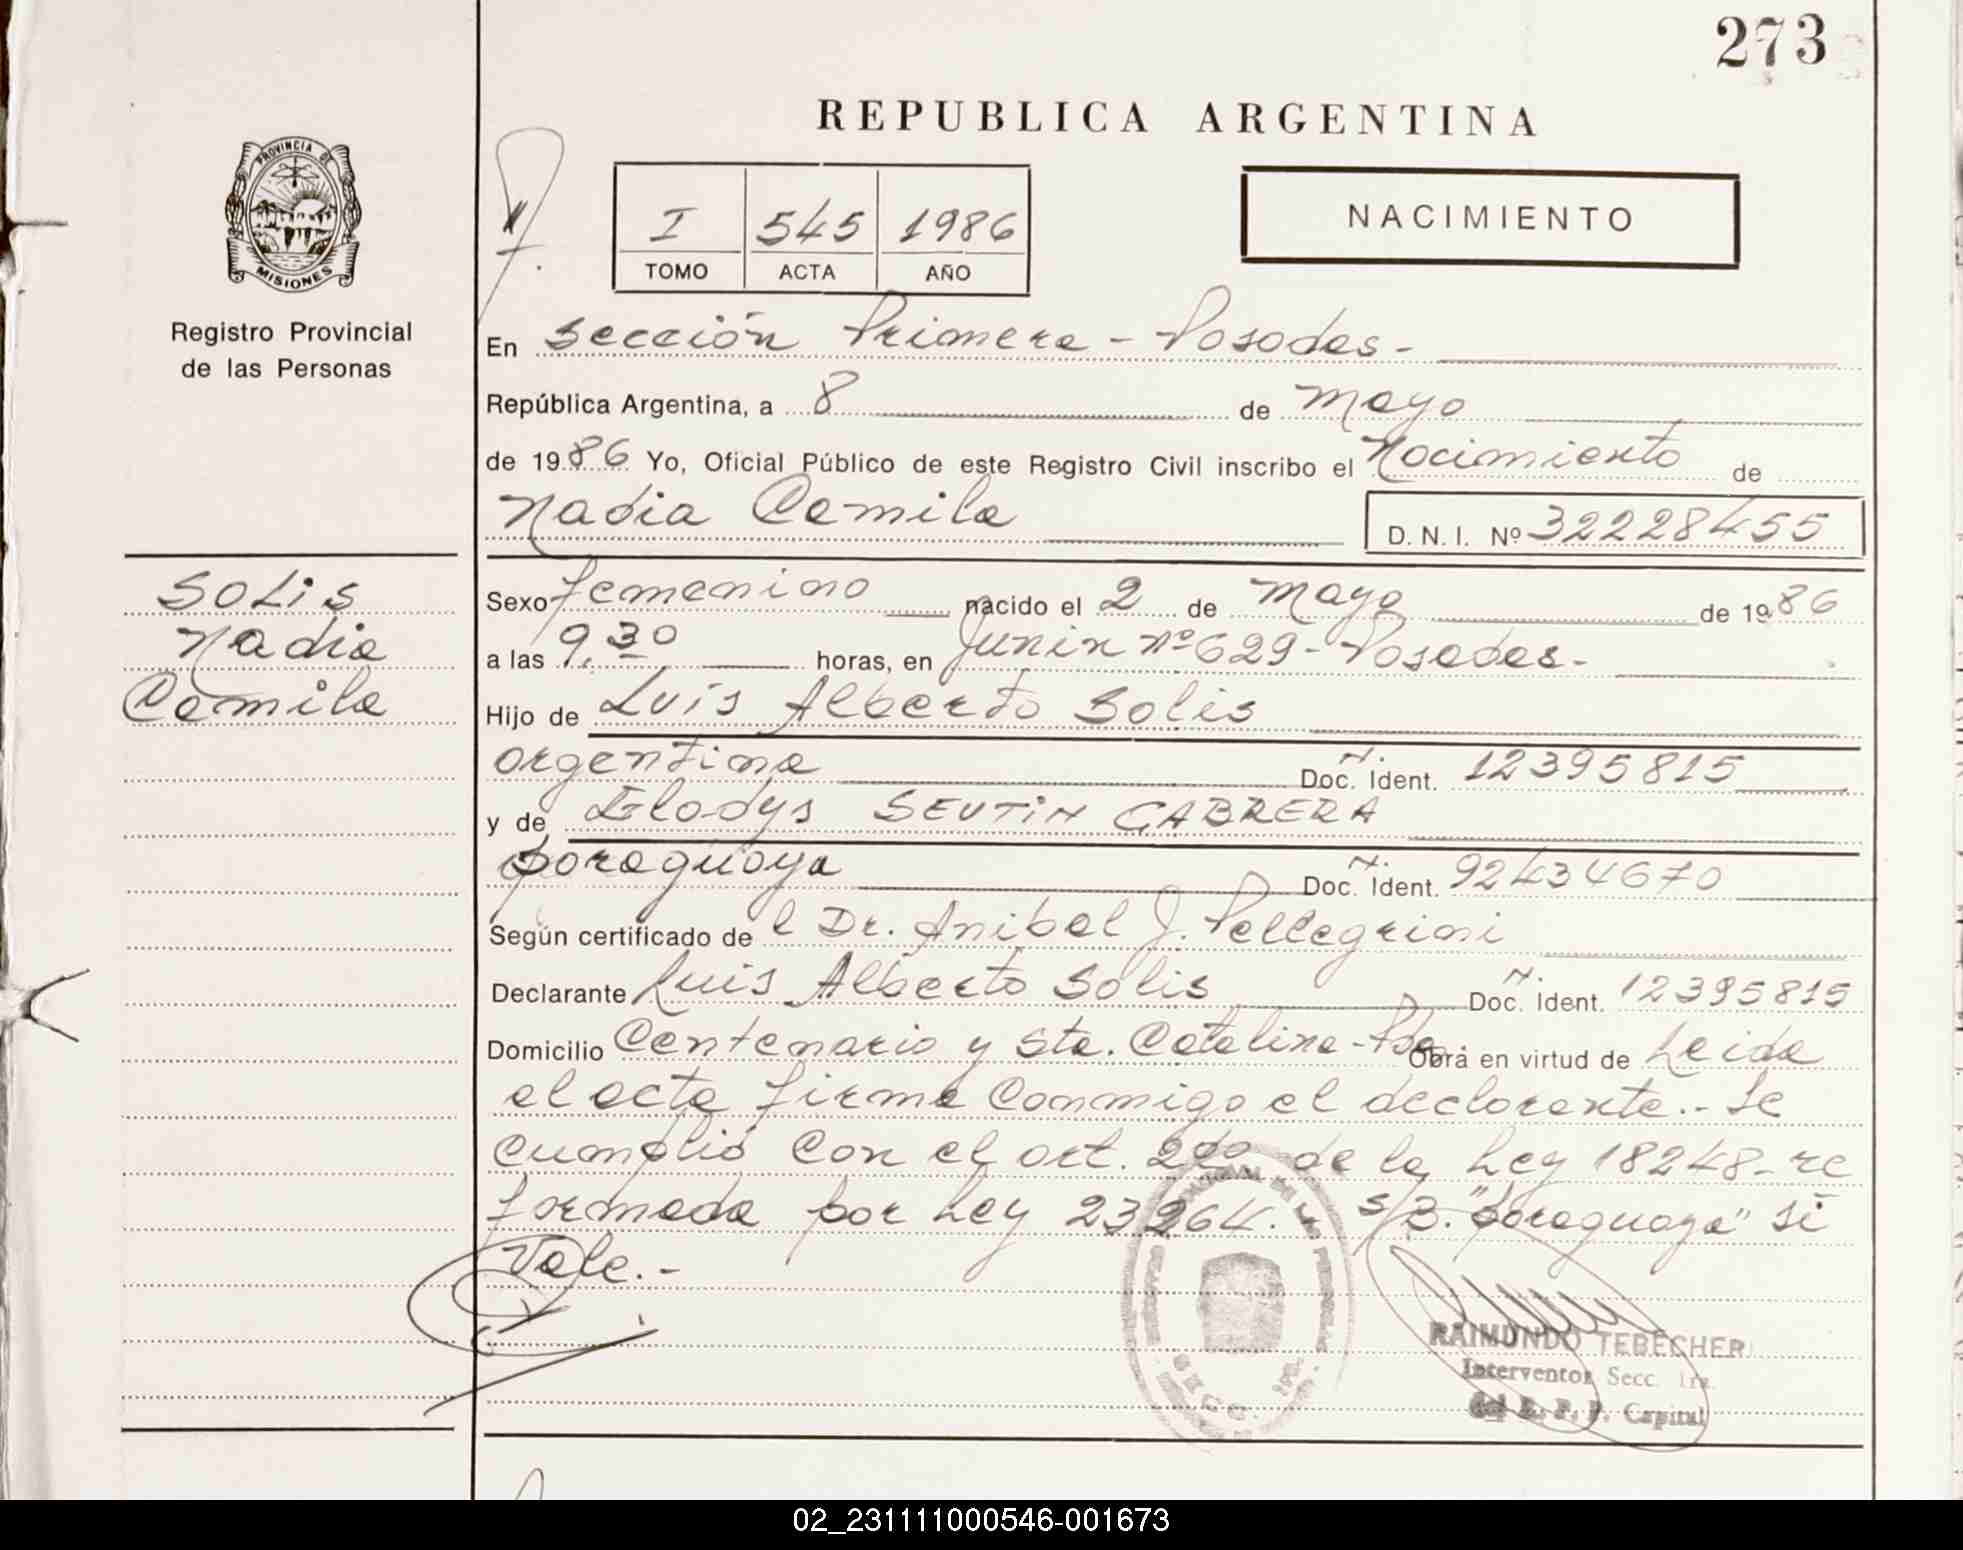 273
REPUBLICA ARGENTINA
PROVINCIA DE
MISIONES
Registro Provincial
de las Personas
I 545 1986
TOMO ACTA AÑO
NACIMIENTO
En Sección Primera - Posadas -
República Argentina, a 8 de mayo
de 1986 Yo, Oficial Público de este Registro Civil inscribo el Nacimiento de
Nadia Camila D. N. I. Nº 32228455
SOLIS
Nadia
Camila
Sexo femenino nacido el 2 de mayo de 1986
a las 9,30 horas, en Junin nº 629 - Posadas -
Hijo de Luis Alberto Solis
argentina Doc. Ident. 12395815
y de Gladys SEUTIN CABRERA
paraguaya Doc. Ident. 92434670
Según certificado de l Dr. Anibal J. Pellegrini
Declarante Luis Alberto Solis Doc. Ident. 12395815
Domicilio Centenario y Sta. Catalina - Pdas Obra en virtud de Leida
el acta firma conmigo el declarante.- Se
cumplió con el art. 2do de la Ley 18248- re
formada por Ley 23264. S/B. "paraguaya" Si
Vale.-
RAIMUNDO TEBECHER
Interventor Secc. 1ra.
del R. P. P. Capital
02_231111000546-001673